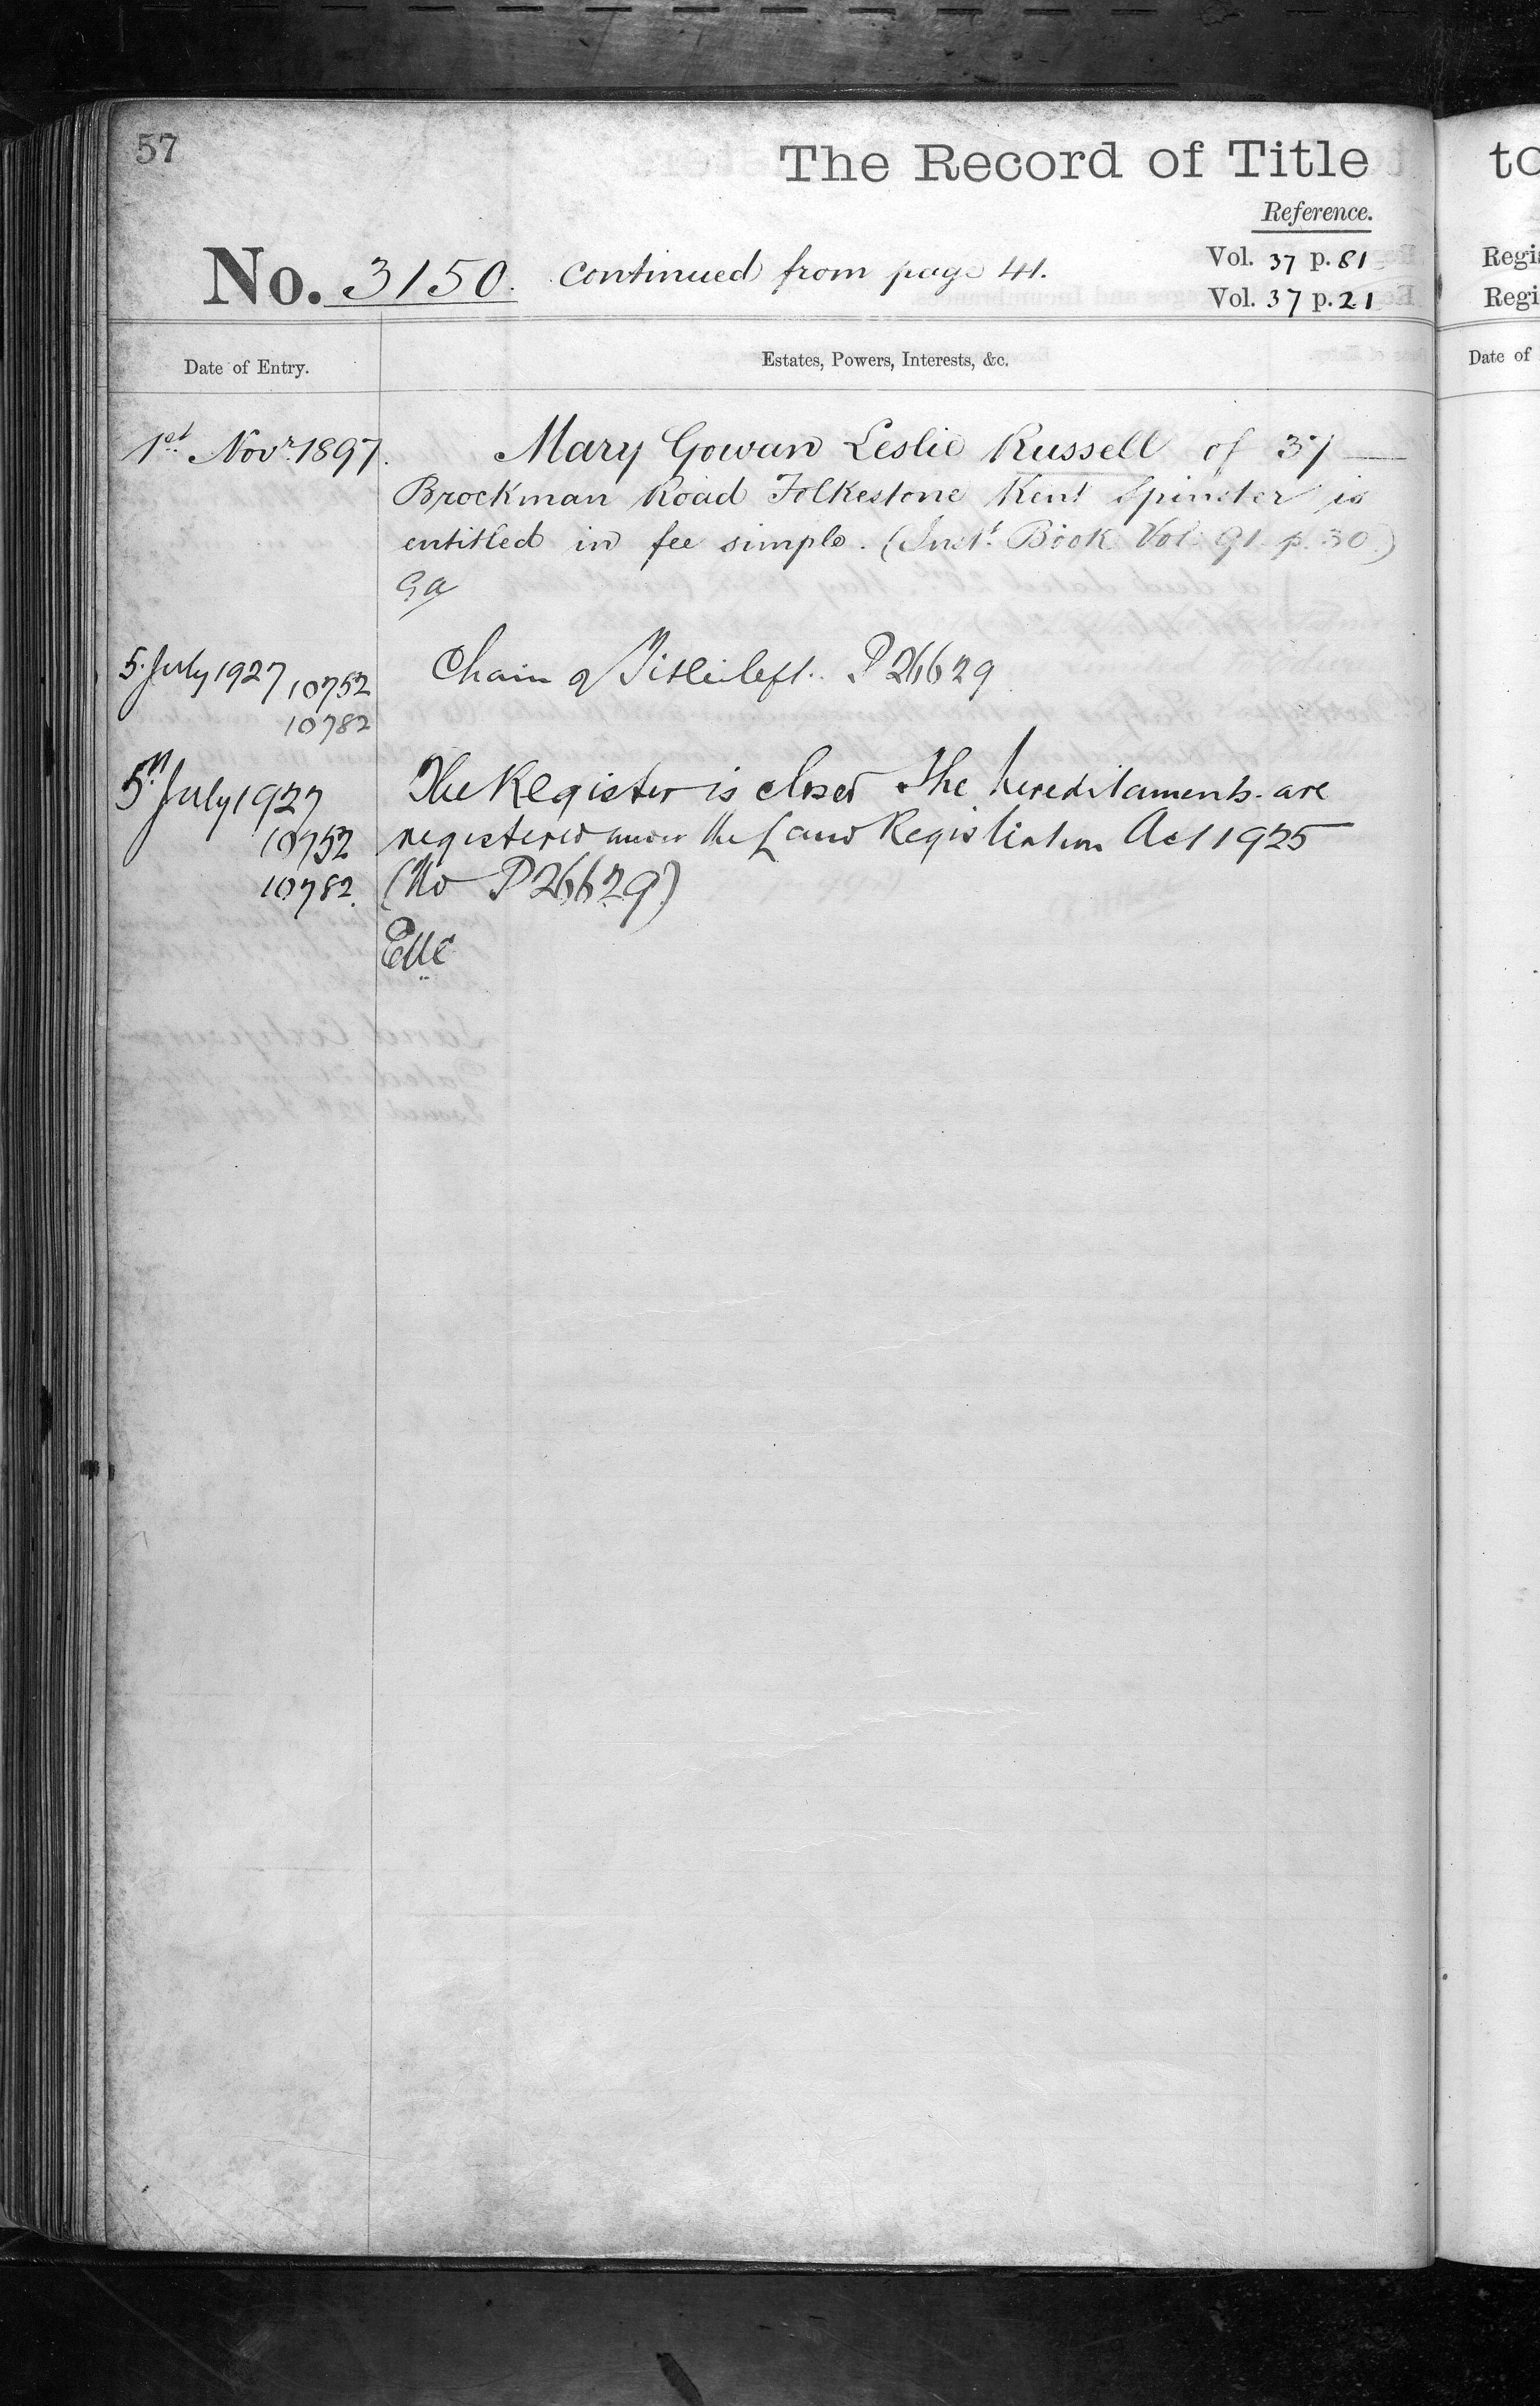 57
The Record of Title
Reference.
No. 3150. continued from page 41.
Vol. 37 p. 81
Vol. 37 p. 21
Date of Entry.
Estates, Powers, Interests, &c.
1st Novr. 1897. Mary Gowan Leslie Russell of 37
Brockman Road Folkestone Kent Spinster is
entitled in fee simple. (Inst. Book Vol. 91. p. 30.)
5. July 1927 10752 Chain of Title left. P26629
10782
5th July 1927 The Register is closed The hereditaments are
10752 registered under the Land Registration Act 1925
10782. (No P26629)
to
Regis
Regi
Date of